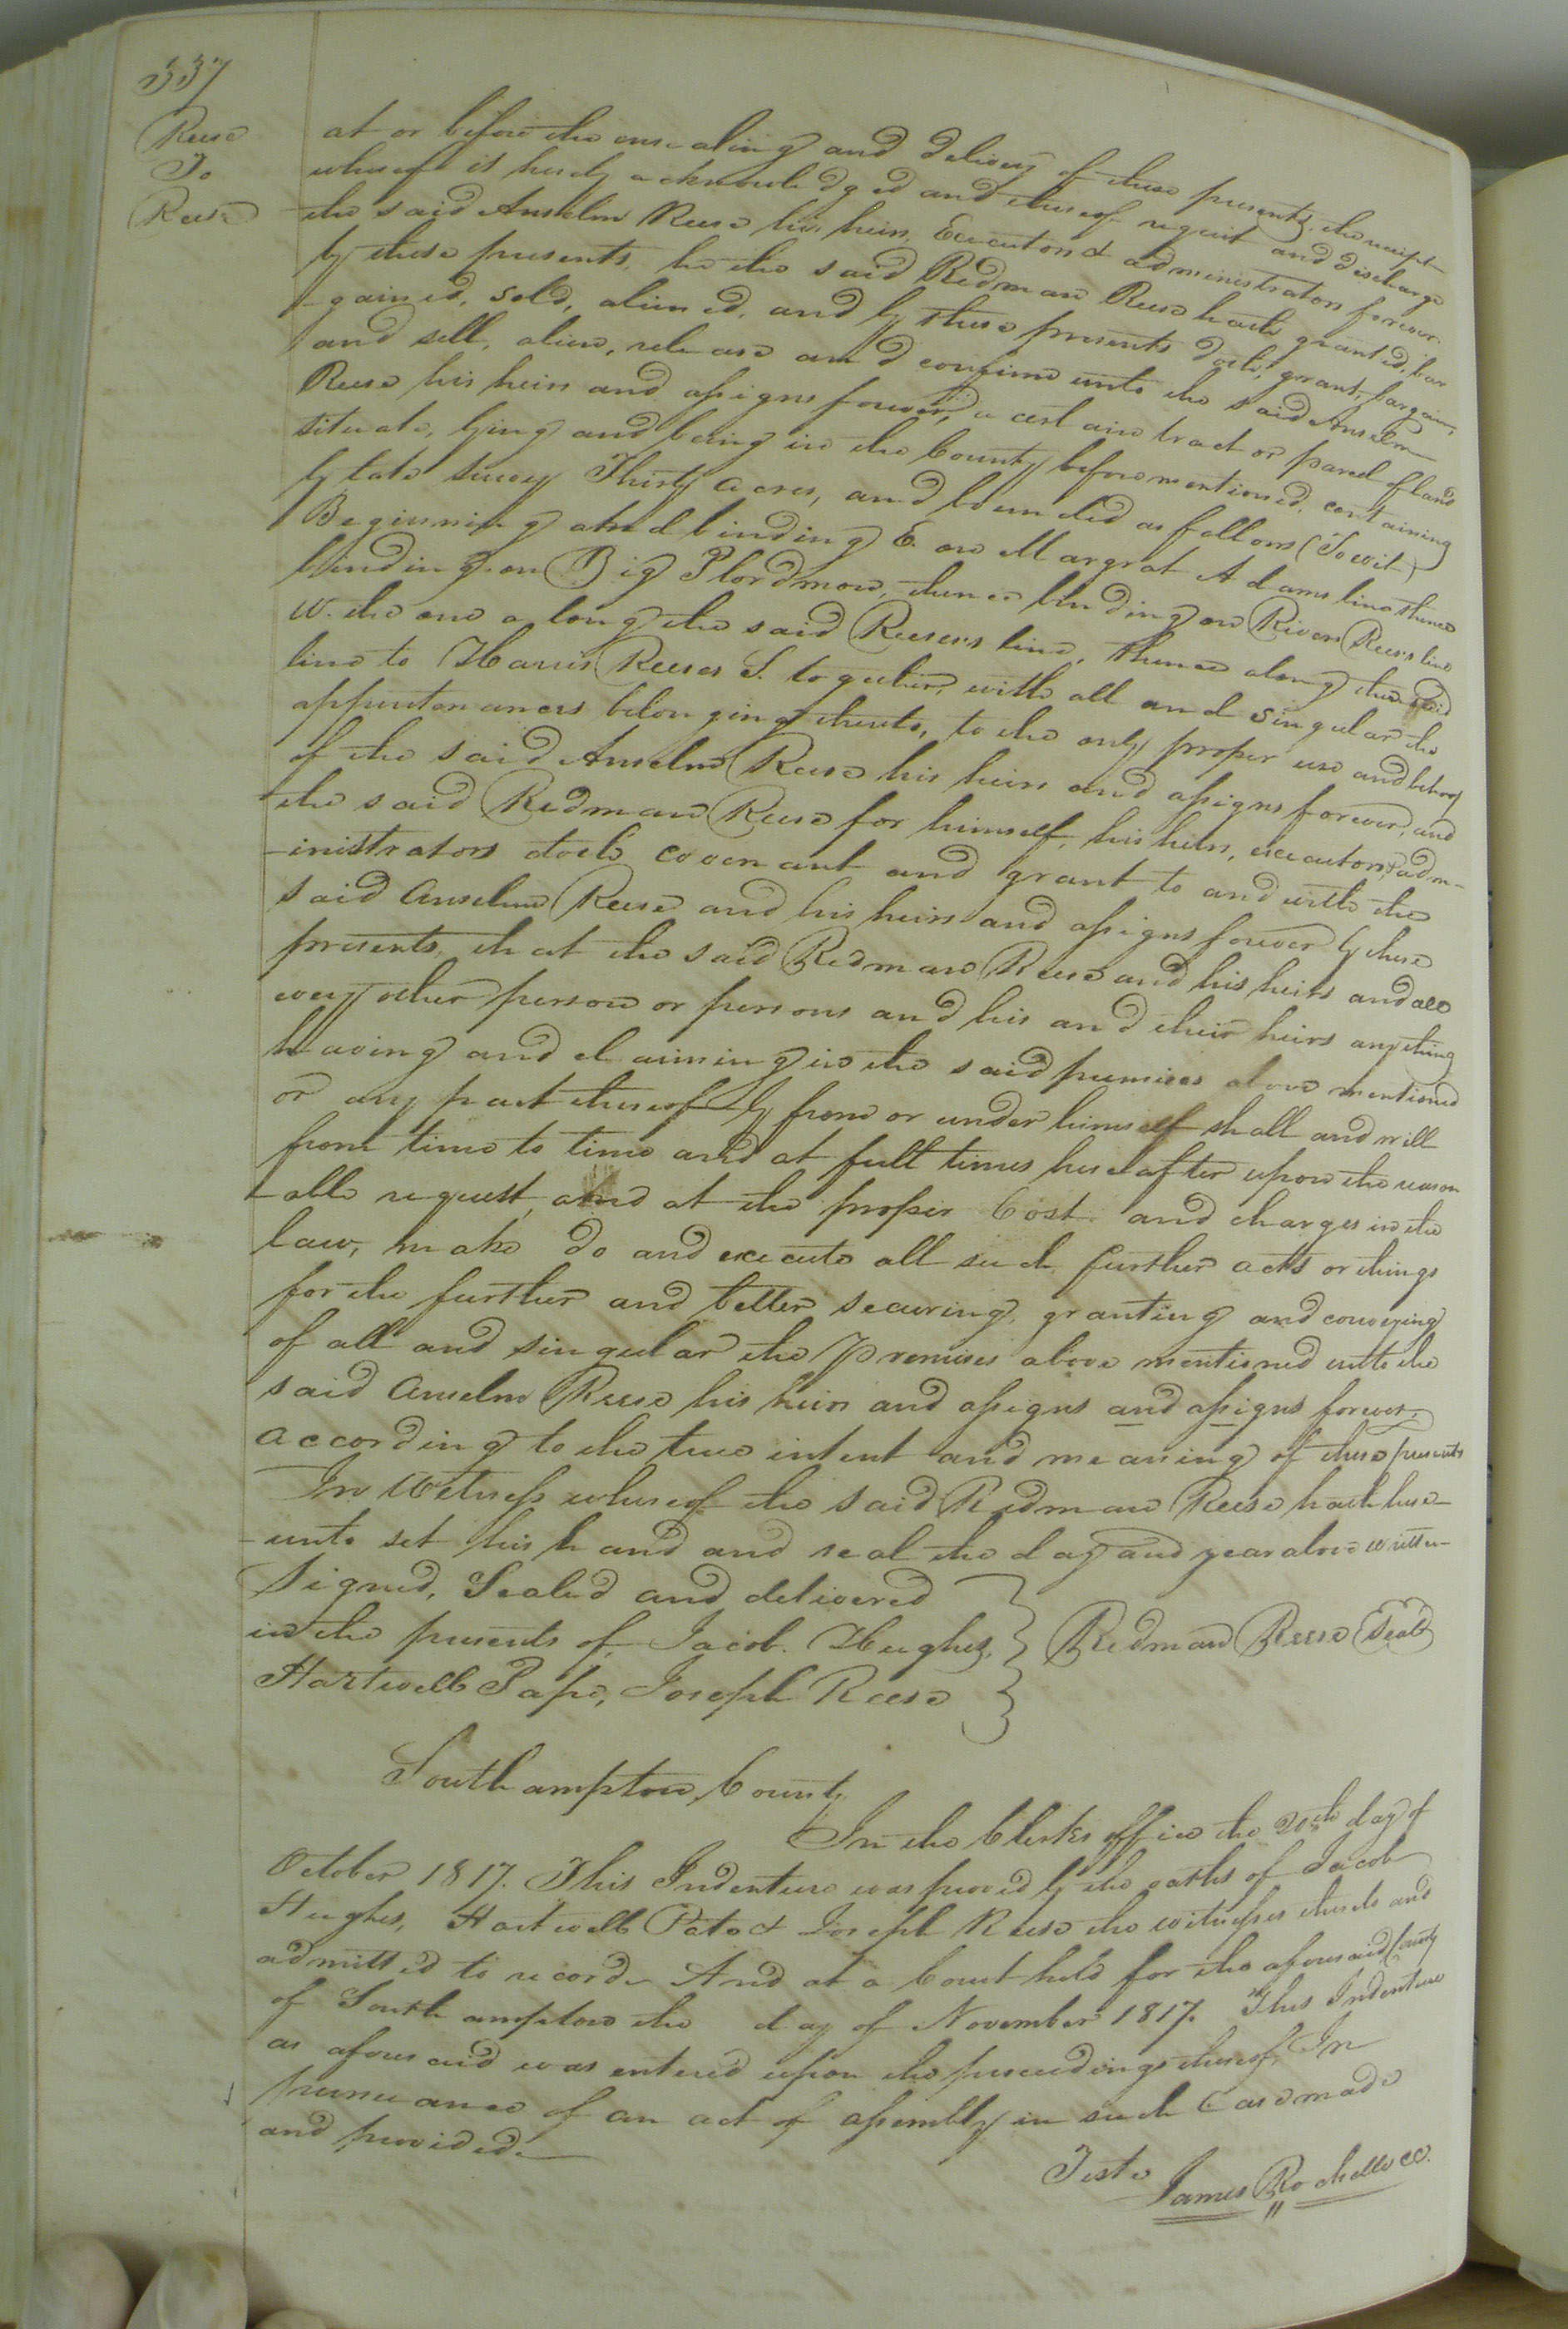 337
Reese
To
Reese
at or before the ensealing and delivery of these presents, the receipt
whereof is hereby acknowledged and thereof requit and discharge
the said Anselm Reese his heirs, Executors & administrators forever
by these presents, he the said Redman Reese hath granted, bar
-gained, sold, aliened, and by these presents doth, grant, bargain,
and sell, alien, release and confirm unto the said Anselm
Reese his heirs and assigns forever, a certain tract or parcel of land
situate, lying and being in the County beforementioned, containing
by late survey Thirty acres, and bounded as follows (To wit)
Beginning and binding E. on Margrat Adams line thence
binding on Big Plordmon, thence binding on Rivers Reeses line
W. thence along the said Reeses line, thence along the said
line to Harris Reeses S. together, with all and singular the
appurtenances belonging thereto, to the only proper use and behoof
of the said Anselm Reese his heirs and assigns forever, and
the said Redman Reese for himself, his heirs, executors, & adm-
-inistrators doth covenant and grant to and with the
said Anselm Reese and his heirs and assigns forever by these
presents, that the said Redman Reese and his heirs and all
every other person or persons and his and their heirs anything
having and claiming in the said premises above mentioned
or any part thereof by from or under himself shall and will
from time to time and at full times hereafter upon the reason
-able request, and at the proper Cost and charges in the
law, make do and execute all such further acts or things
for the further and better securing, granting and conveying
of all and singular the premises above mentioned unto the
said Anselm Reese his heirs and assigns and assigns forever,
according to the true intent and meaning of these presents
In Witness whereof the said Redman Reese hath here-
-unto set his hand and seal the day and year above written
Signed, Sealed and delivered
in the presents of, Jacob. Hughes,
Hartwell Pape, Joseph Reese
Redman Reese Seal
Southampton County
In the Clerks office the 20th day of
October 1817. This Indenture was proved by the oaths of Jacob
Hughes, Hartwell Pate & Joseph Reese the witnesses thereto and
admitted to record. And at a Court held for the aforesaid County
of Southampton the day of November 1817. This Indenture
as aforesaid was entered upon the proceedings thereof, In
pursuance of an act of assembly in such Case made
and provided.
Teste
James Rochelle CC.